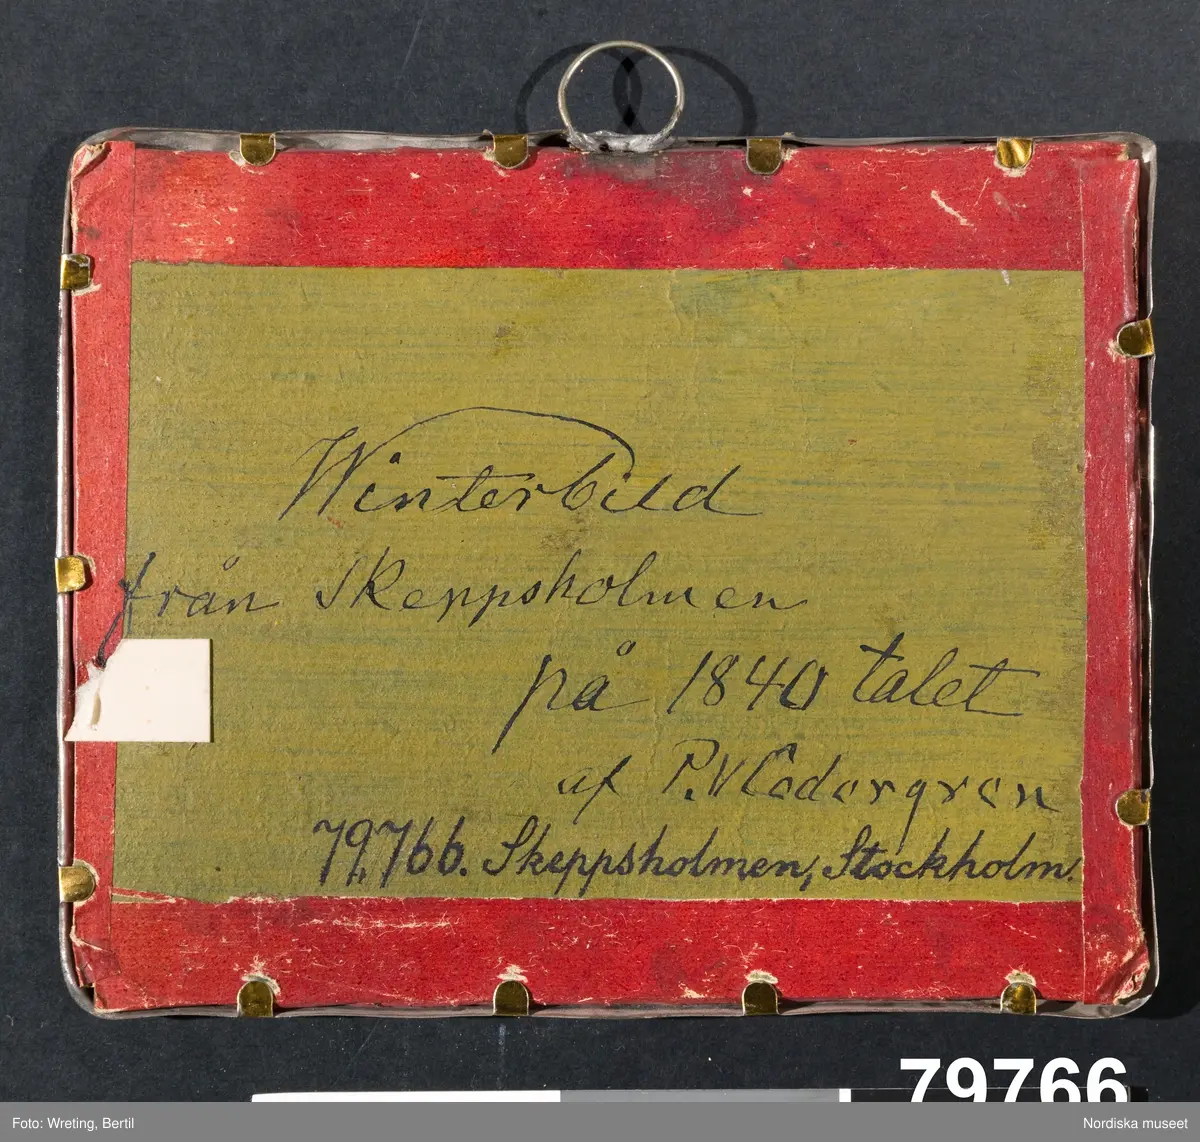 Winterbild
från Skeppsholmen
på 1840 talet
af P.V Cedergren
79,766. Skeppsholmen, Stockholm.
79766
Foto: Wreting, Bertil
Nordiska museet